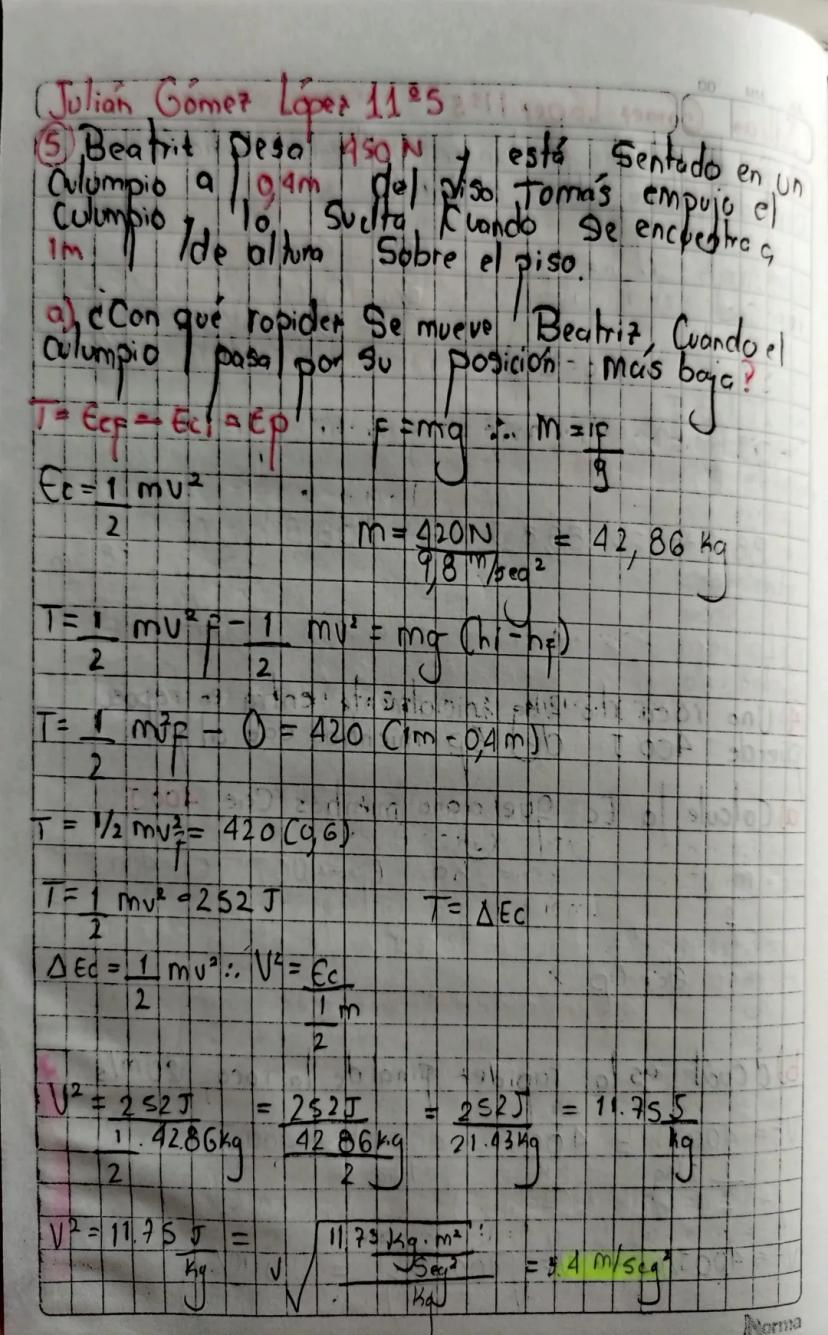 Julián Gómez López 11°5
⑤ Beatriz pesa 450 N y está Sentado en un
Culumpio a 0,4m del piso, Tomás empuja el
Culumpio y lo suelta, Cuando se encuentra a
1m de altura Sobre el piso.
a) ¿Con qué rapidez Se mueve Beatriz, Cuando el
Culumpio pasa por su posición más baja?
T = Ecf - Eci = Ep F = mg ∴ m = F/g
Ec = 1/2 mv²
m = 420 N / 9,8 m/seg² = 42,86 kg
T = 1/2 mv²f - 1/2 mv² = mg (hi - hf)
T = 1/2 m²f - 0 = 420 (1m - 0,4m)
T = 1/2 mv²f = 420 (0,6)
T = 1/2 mv² = 252 J T = ΔEc
ΔEc = 1/2 mv² ∴ V² = Ec / 1/2 m
V² = 252 J / 1/2 . 42.86 kg = 252 J / 42 86 kg / 2 = 252 J / 21.43 kg = 11.75 J/kg
V² = 11.75 J/kg = √ 11.75 kg . m² / seg² / kg = 3.4 m/seg²
Norma